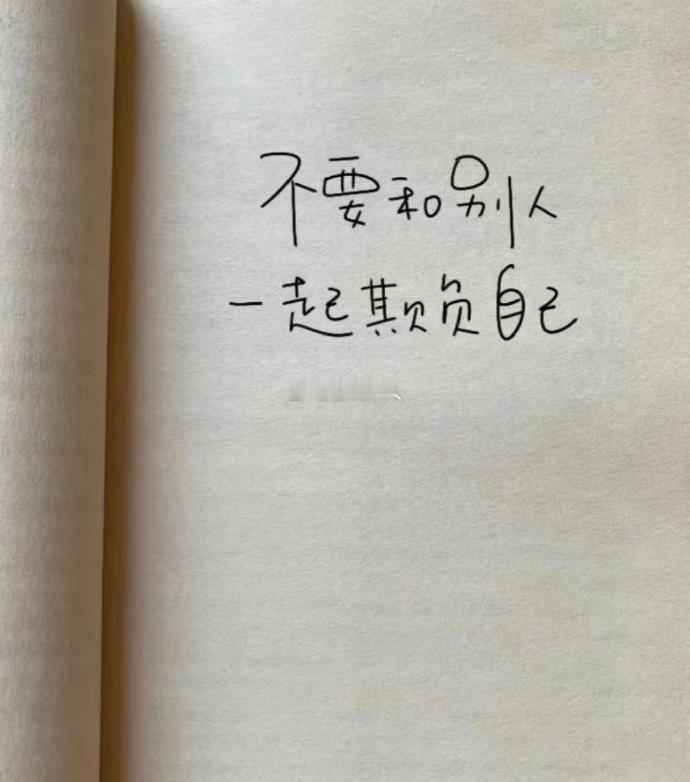 不要和别人
一起欺负自己